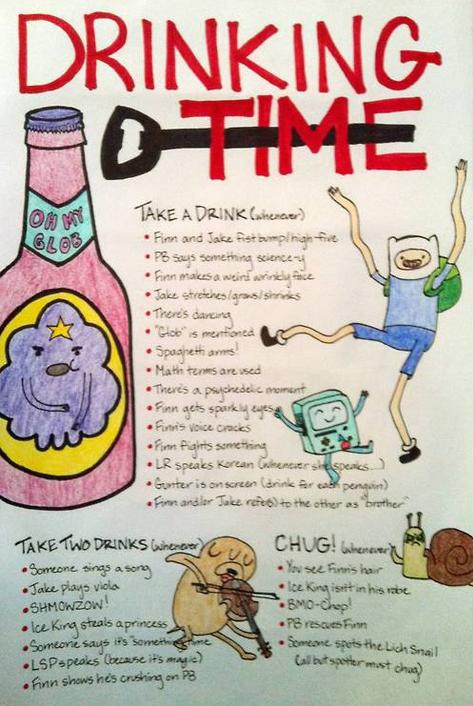 DRINKING
TIME
OH MY
GLOB
TAKE A DRINK (whenever)
• Finn and Jake fist bump/high-five
• PB says something science-y
• Finn makes a weird wrinkly face
• Jake stretches/grows/shrinks
• There's dancing
• "Glob" is mentioned
• Spaghetti arms!
• Math terms are used
• There's a psychedelic moment
• Finn gets sparkly eyes
• Finn's voice cracks
• Finn fights something
• LR speaks Korean (whenever she speaks...)
• Gunter is on screen (drink for each penguin)
• Finn and/or Jake refer(s) to the other as "brother"
TAKE TWO DRINKS (whenever)
• Someone sings a song
• Jake plays viola
• SHMOWZOW!
• Ice King steals a princess
• Someone says it's "something" time
• LSP speaks (because it's magic)
• Finn shows he's crushing on PB
CHUG! (whenever)
• You see Finn's hair
• Ice King isn't in his robe
• BMO-Chop!
• PB rescues Finn
• Someone spots the Lich Snail
(all but spotter must chug)